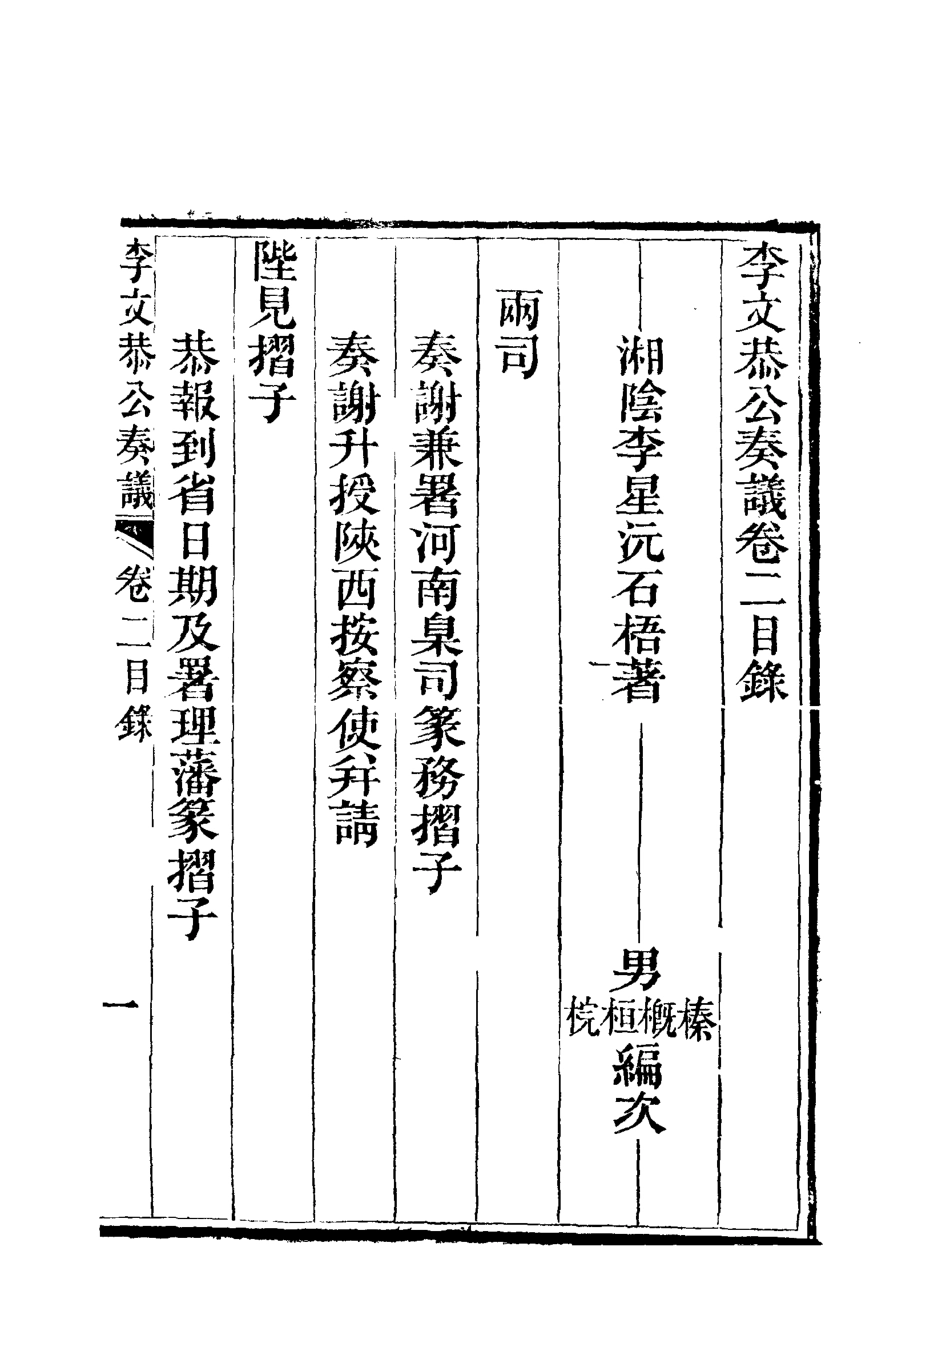 李文恭公奏議卷二目錄
湘陰李星沅石梧著　男榛概桓梡編次
兩司
奏謝兼署河南臬司篆務摺子
奏謝升授陝西按察使并請
陛見摺子
恭報到省日期及署理藩篆摺子
李文恭公奏議　卷二目錄　一